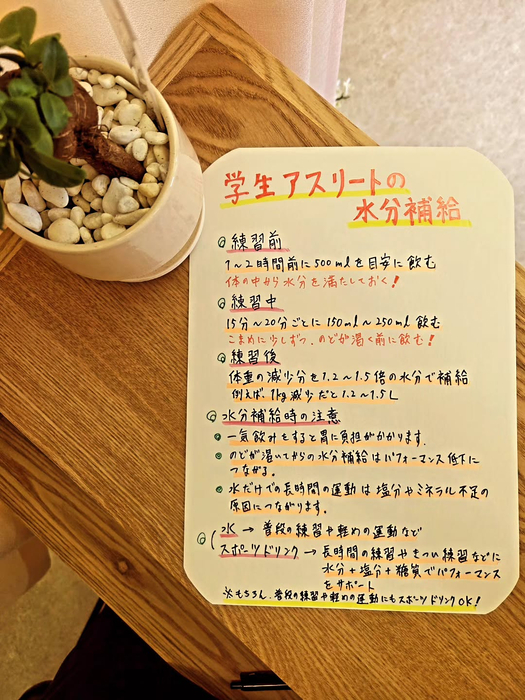 学生アスリートの
水分補給
練習前
1〜2時間前に500mlを目安に飲む
体の中から水分を満たしておく!
練習中
15分〜20分ごとに150ml〜250ml飲む
こまめに少しずつ、のどが渇く前に飲む!
練習後
体重の減少分を1.2〜1.5倍の水分で補給
例えば、1kg減少だと1.2〜1.5L
水分補給時の注意
一気飲みをすると胃に負担がかかります.
のどが渇いてからの水分補給はパフォーマンス低下に
つながる。
水だけでの長時間の運動は塩分やミネラル不足の
原因につながります。
水 → 普段の練習や軽めの運動など
スポーツドリンク → 長時間の練習やきつい練習などに
水分+塩分+糖質でパフォーマンス
をサポート
※もちろん、普段の練習や軽めの運動にもスポーツドリンクOK!